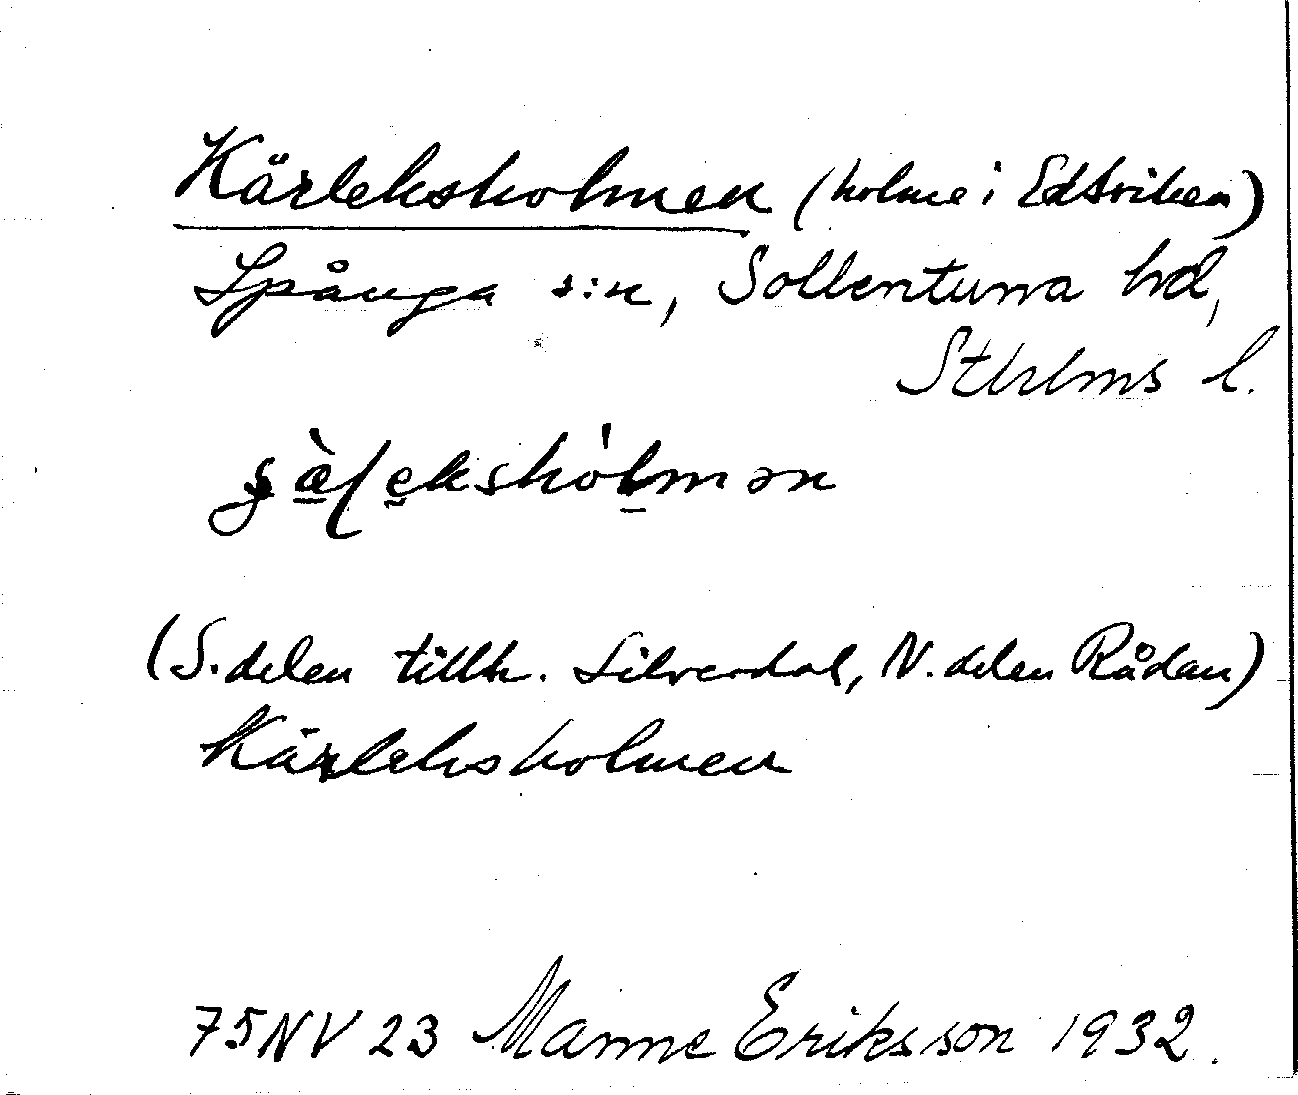 Kärleksholmen (holme i Edsviken)
Spånga s:n, Sollentuna hd,
Sthlms l.
(S. delen tillh. Silverdal, N. delen Rådan)
Kärleksholmen
75NV23 Manne Eriksson 1932.